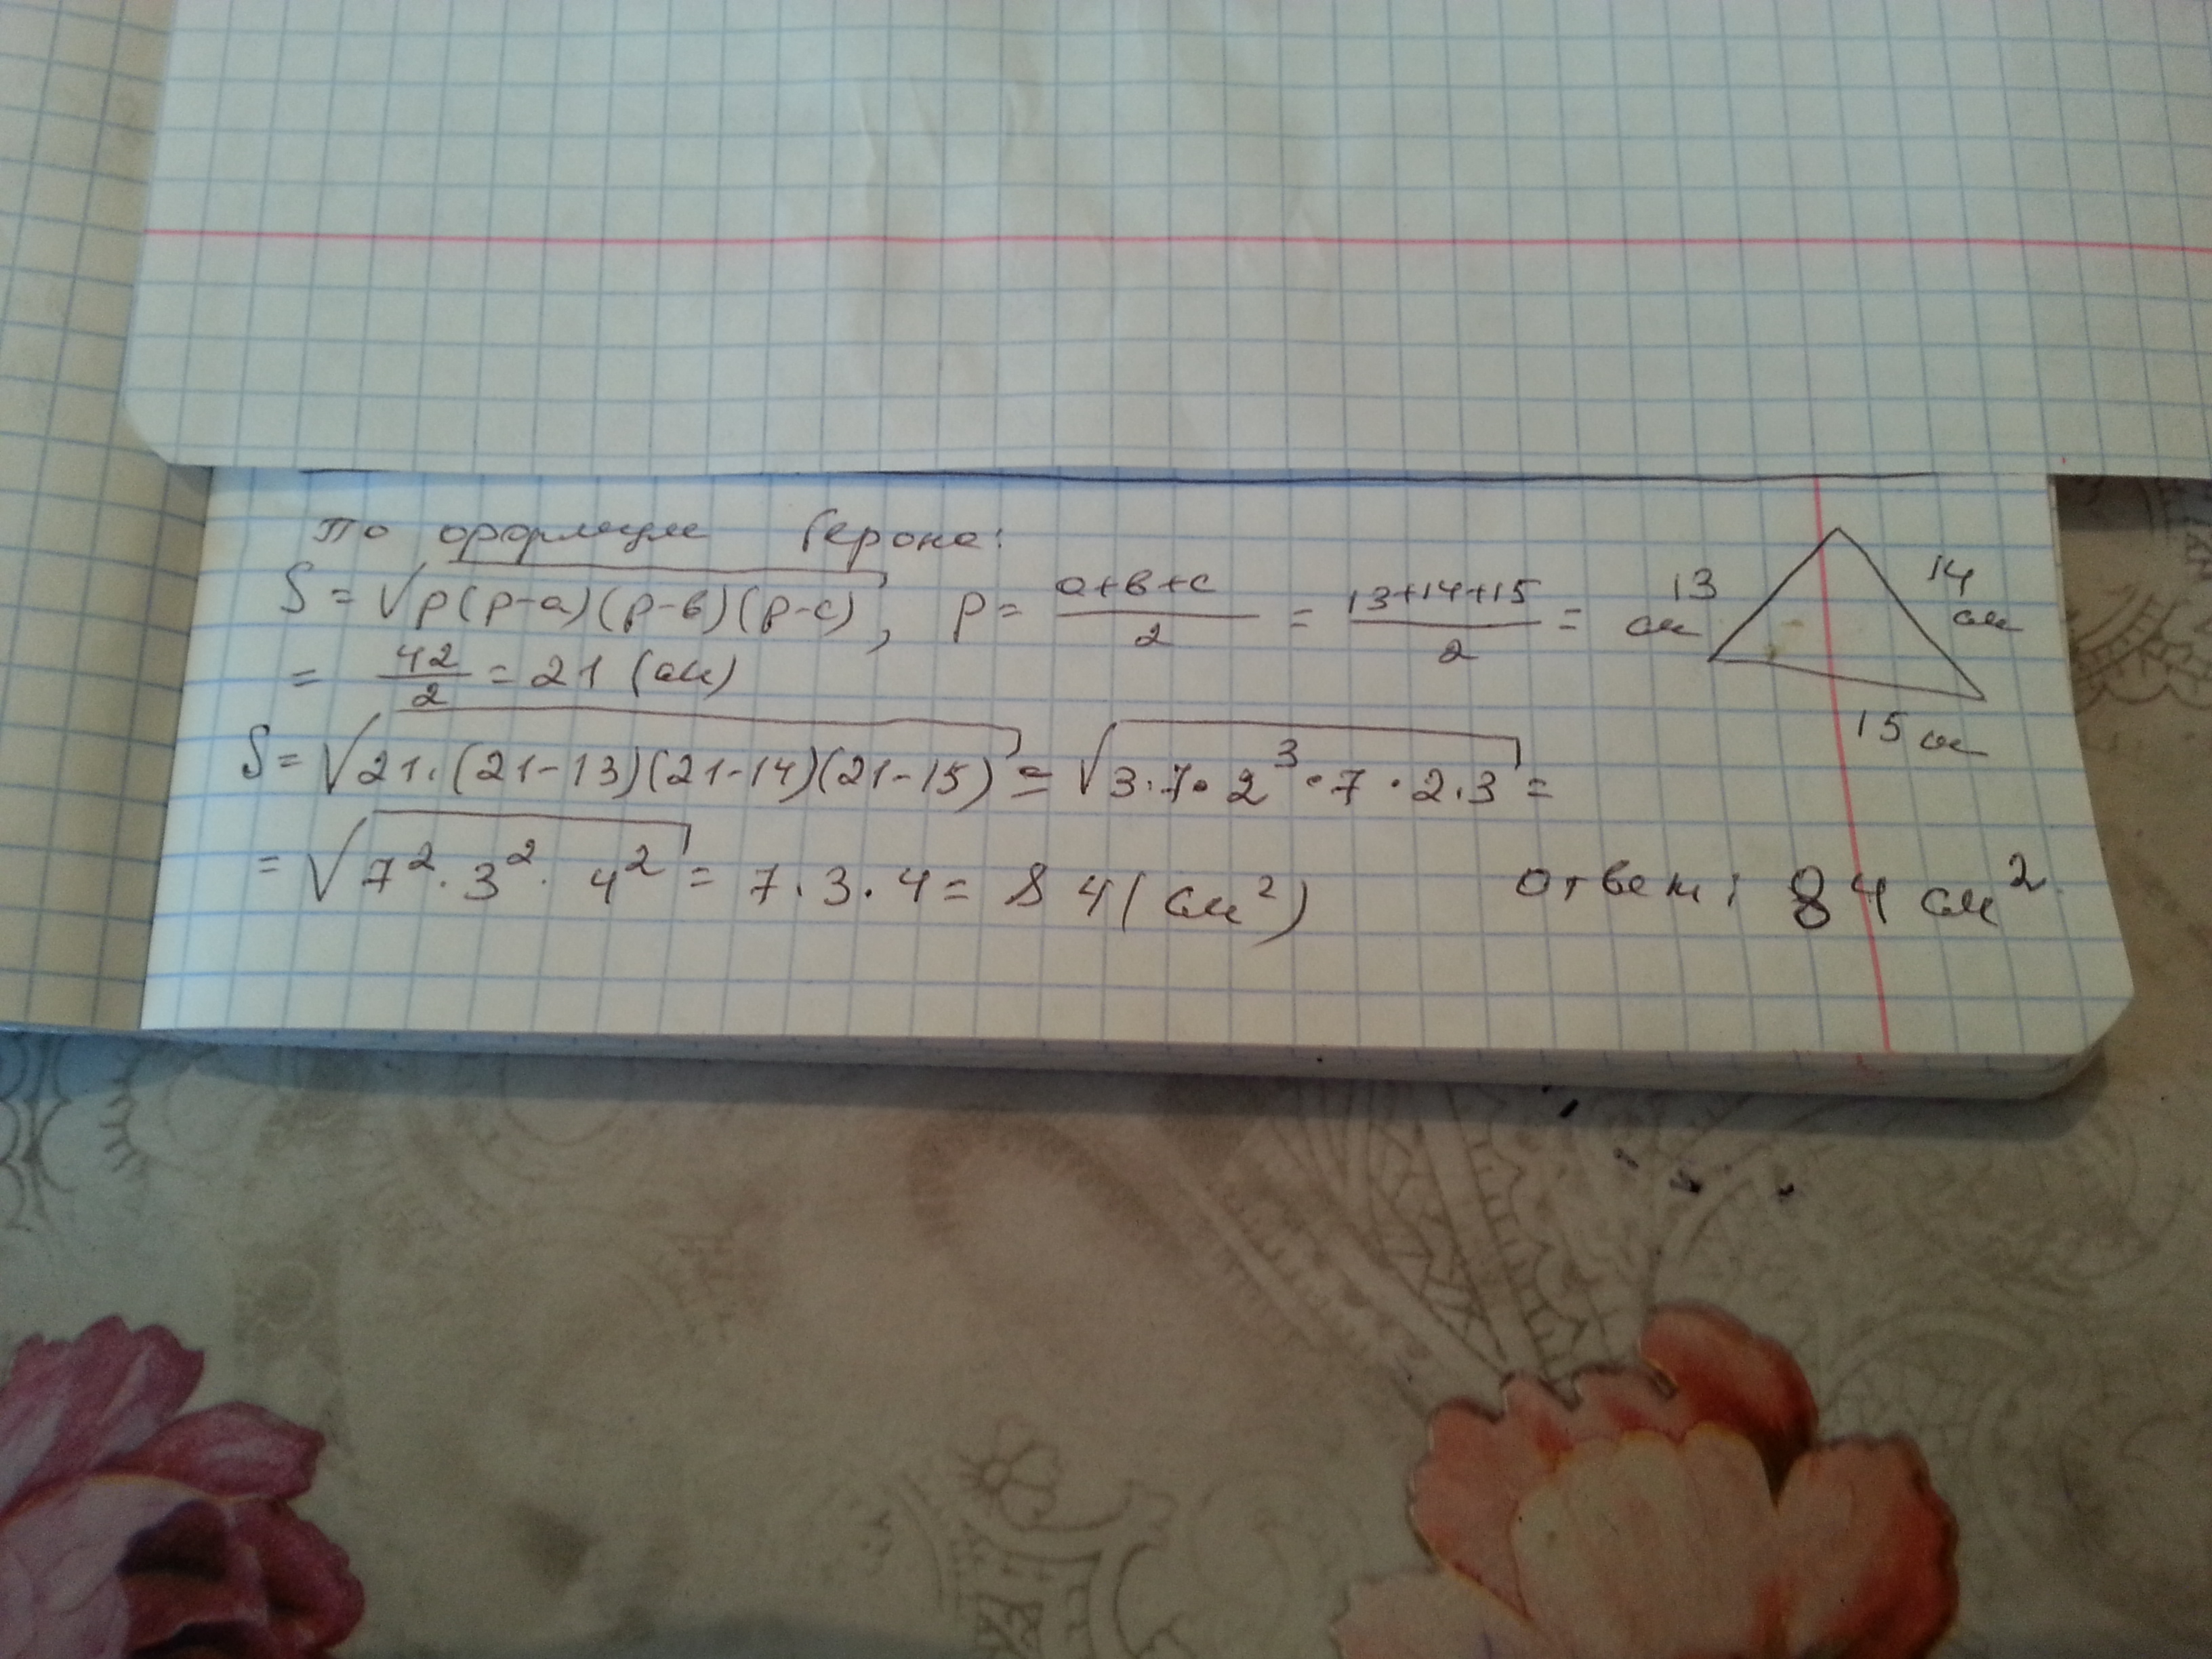 По формуле Герона:
S = √p(p-a)(p-в)(p-c), p = a+в+c/2 = 13+14+15/2 =
= 42/2 = 21 (см)
13 см
14 см
15 см
S = √21·(21-13)(21-14)(21-15) = √3·7·2³·7·2·3 =
= √7²·3²·4² = 7·3·4 = 84 (см²)
Ответ: 84 см²